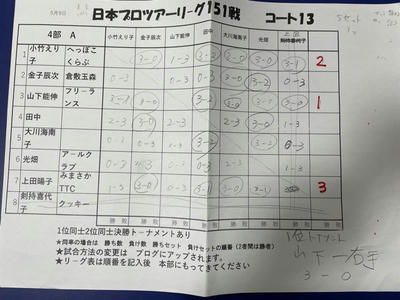 5月9日
日本プロツアーリーグ151戦 コート13
5セット
4部 A 小竹えり子 金子辰次 山下能伸 田中 大川海南子 光畑 上田
1 小竹えり子 へっぽこくらぶ 3-0 3-0 3-1 2
2 金子辰次 倉敷玉森 0-3 0-3 0-3
3 山下能伸 フリーランス 3-0 3-0 1
4 田中 2-3 3-0 2-3 3-0
5 大川海南子 0-3 3-2
6 光畑 アールクラブ 0-3 0-3 0-3 2-3 1-3
7 上田陽子 みまさかTTC 1-3 3-0 0-3 3-1 3
8 剣持喜代子 クッキー
勝 敗 勝 敗 勝 敗 勝 敗 勝 敗 勝 敗 勝 敗
1位同士2位同士決勝トーナメントあり
★同率の場合は 勝ち数 負け数 勝ちセット 負けセットの順番(2者間は勝者)
★試合方法の変更は ブログにアップされます。
★リーグ表は順番を記入後 本部にもってきてください
1位トーナメント
山下-右手
3-0